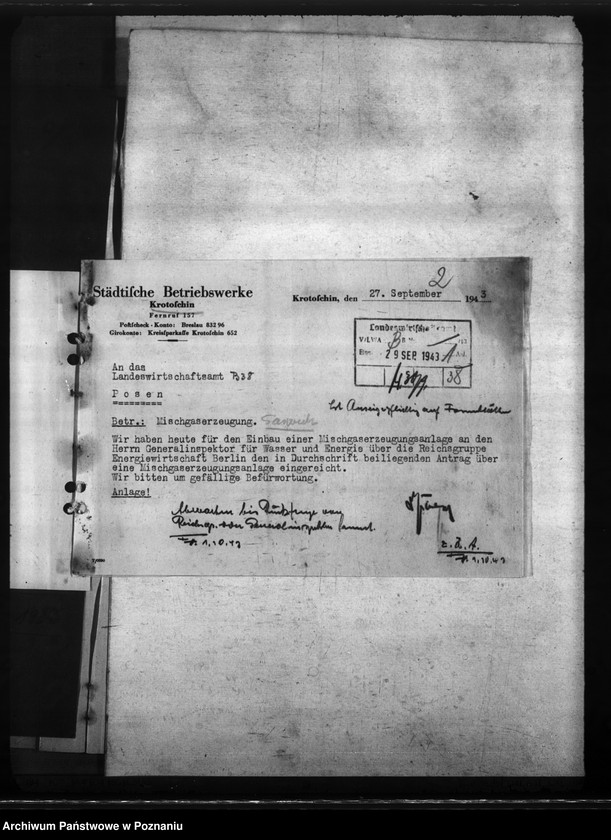 2
Städtische Betriebswerke
Krotoschin
Fernruf 157
Postscheck-Konto: Breslau 832 96
Girokonto: Kreissparkasse Krotoschin 652
Krotoschin, den 27. September 1943
Landeswirtschaftsamt
V/LWA B
29 SEP. 1943
38
An das
Landeswirtschaftsamt
Posen
=========
Betr.: Mischgaserzeugung.
Wir haben heute für den Einbau einer Mischgaserzeugungsanlage an den
Herrn Generalinspektor für Wasser und Energie über die Reichsgruppe
Energiewirtschaft Berlin den in Durchschrift beiliegenden Antrag über
eine Mischgaserzeugungsanlage eingereicht.
Wir bitten um gefällige Befürwortung.
Anlage!
1.10.43
z.d.A.
1.10.43
Archiwum Państwowe w Poznaniu